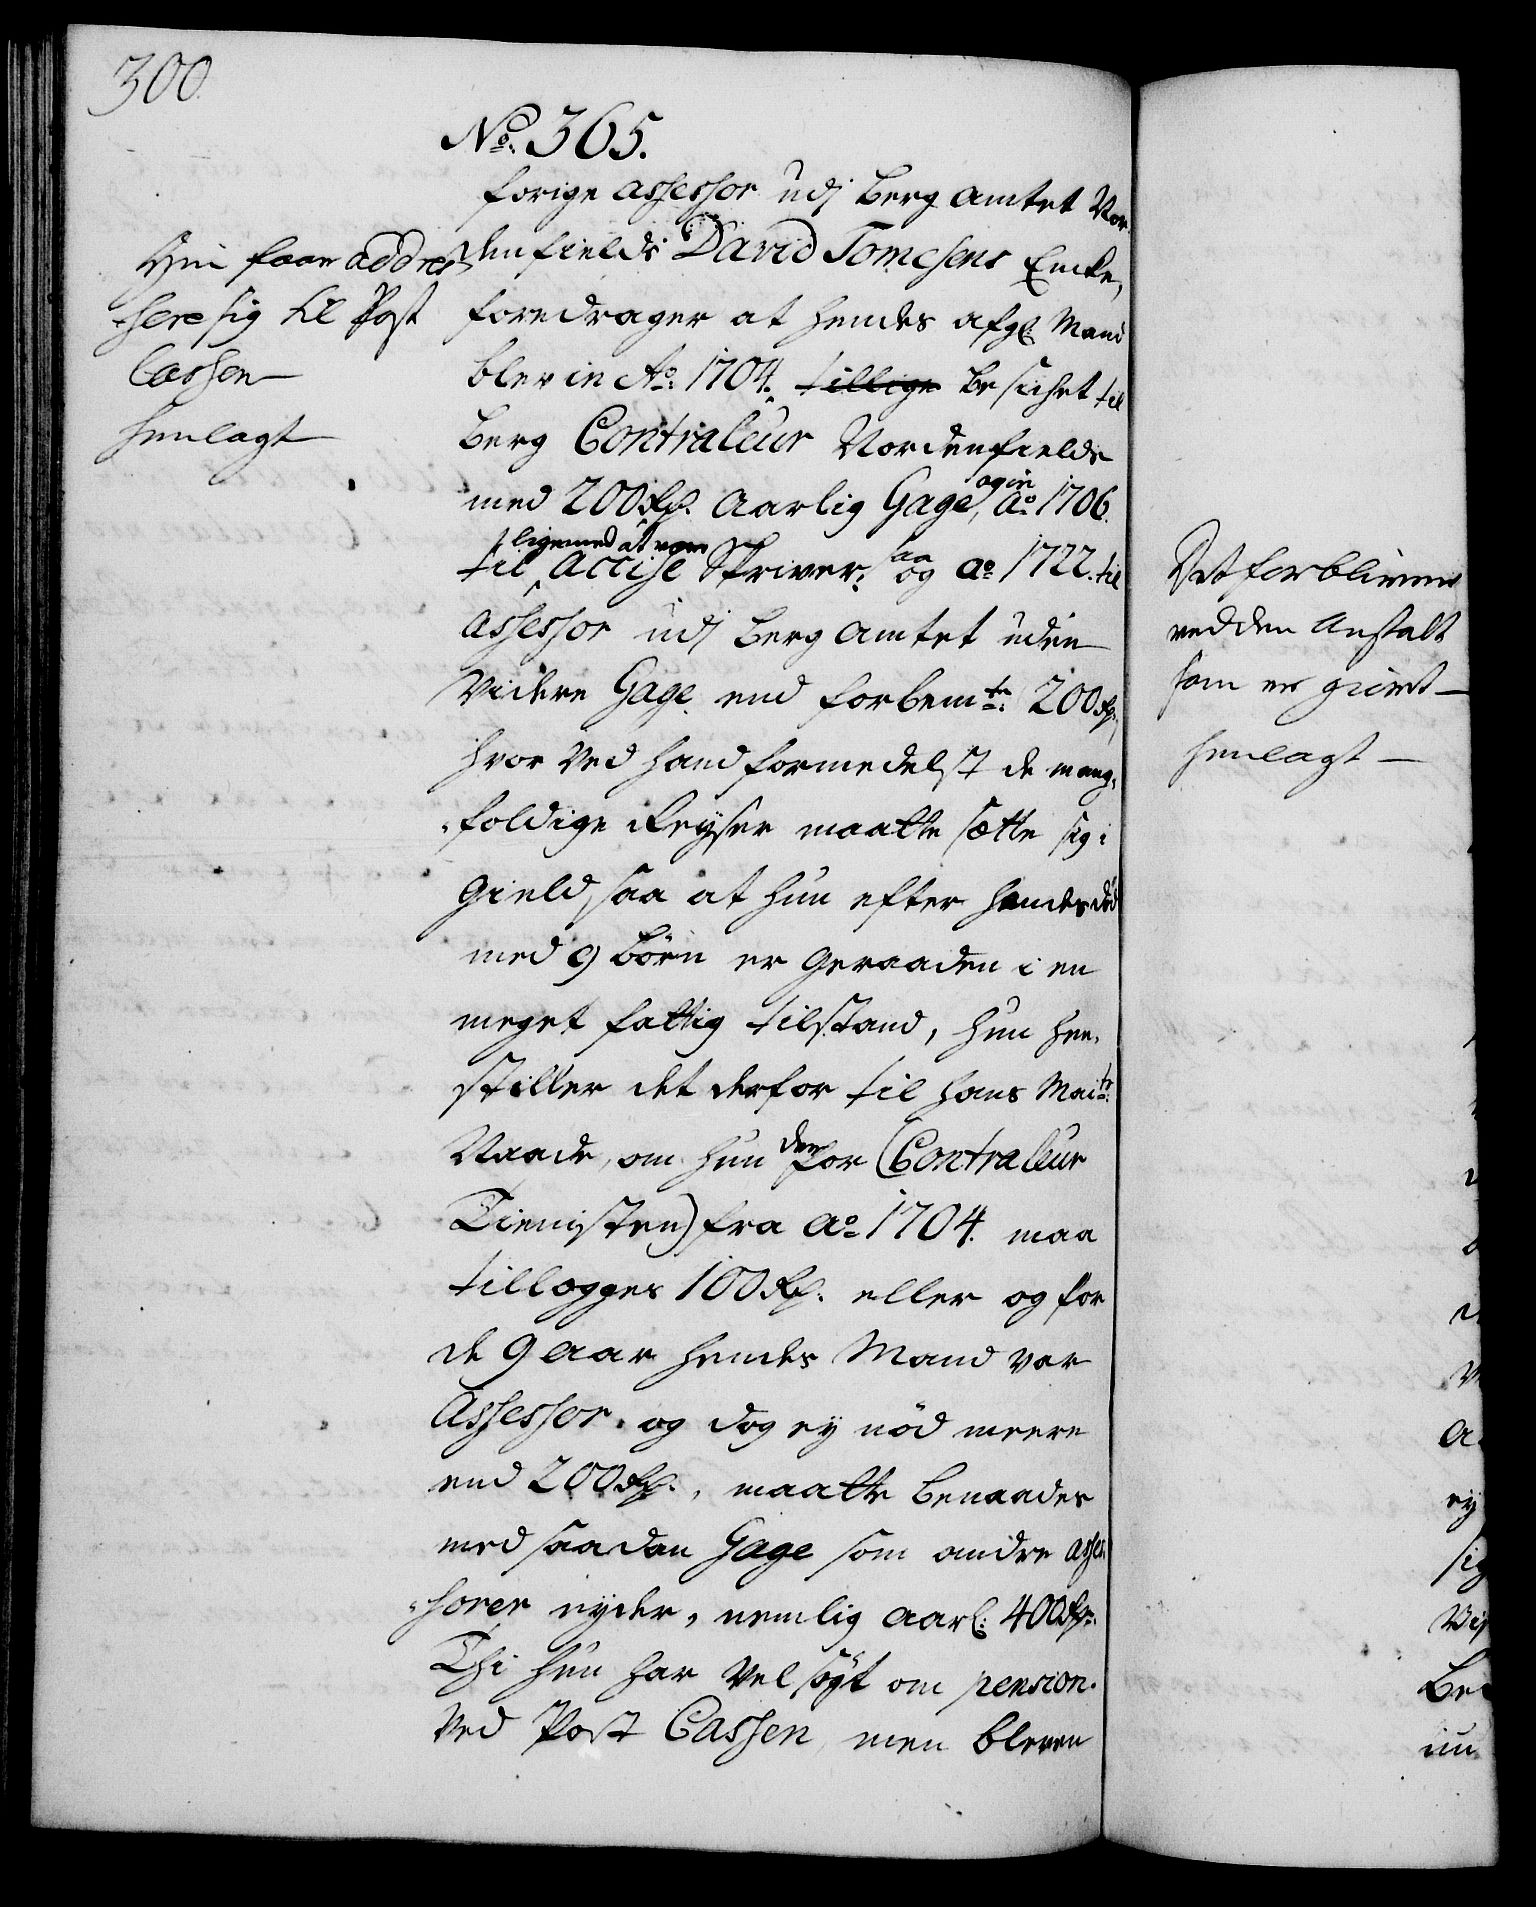 300.
No. 365.
forige Assessor udj Berg Amtet Nor-
denfields David Tomesens Encke,
foredrager at hendes afgl. Mand
blev in Ao. 1704. tillige besichet til
Berg Contraleur Nordenfields
med 200 Rd. aarlig Gage, og in Ao 1706.
til ligemed at være Accise Skriver, saa og Ao 1722. til
Assessor udj Berg Amtet uden
Videre Gage end forbemte. 200 Rd.
hvor ved hand formedelst de mang-
foldige Reyser maatte sætte sig i
Gield, saa at hun efter handes død
med 9 børn er geraaden i en
meget fattig tilstand, hun hen-
stiller det derfor til hans Maits.
Naade, om hun der for (Contraleur
Tienisten) fra Ao 1704. maa
tillægges 100 Rd. eller og for
de 9 aar hendes Mand var
Assessor, og dog ey nød meere
end 200 Rd., maatte benaades
med saadan Gage som andre Asses-
sorer nyder, nemlig aarl: 400 Rd.
Thi hun har vel søgt om pension
ved Post Cassen, men bleven
Hun faar addres-
sere sig til Post
Cassen
henlagt
Det forbliver
ved den Anstalt
som er giort
henlagt